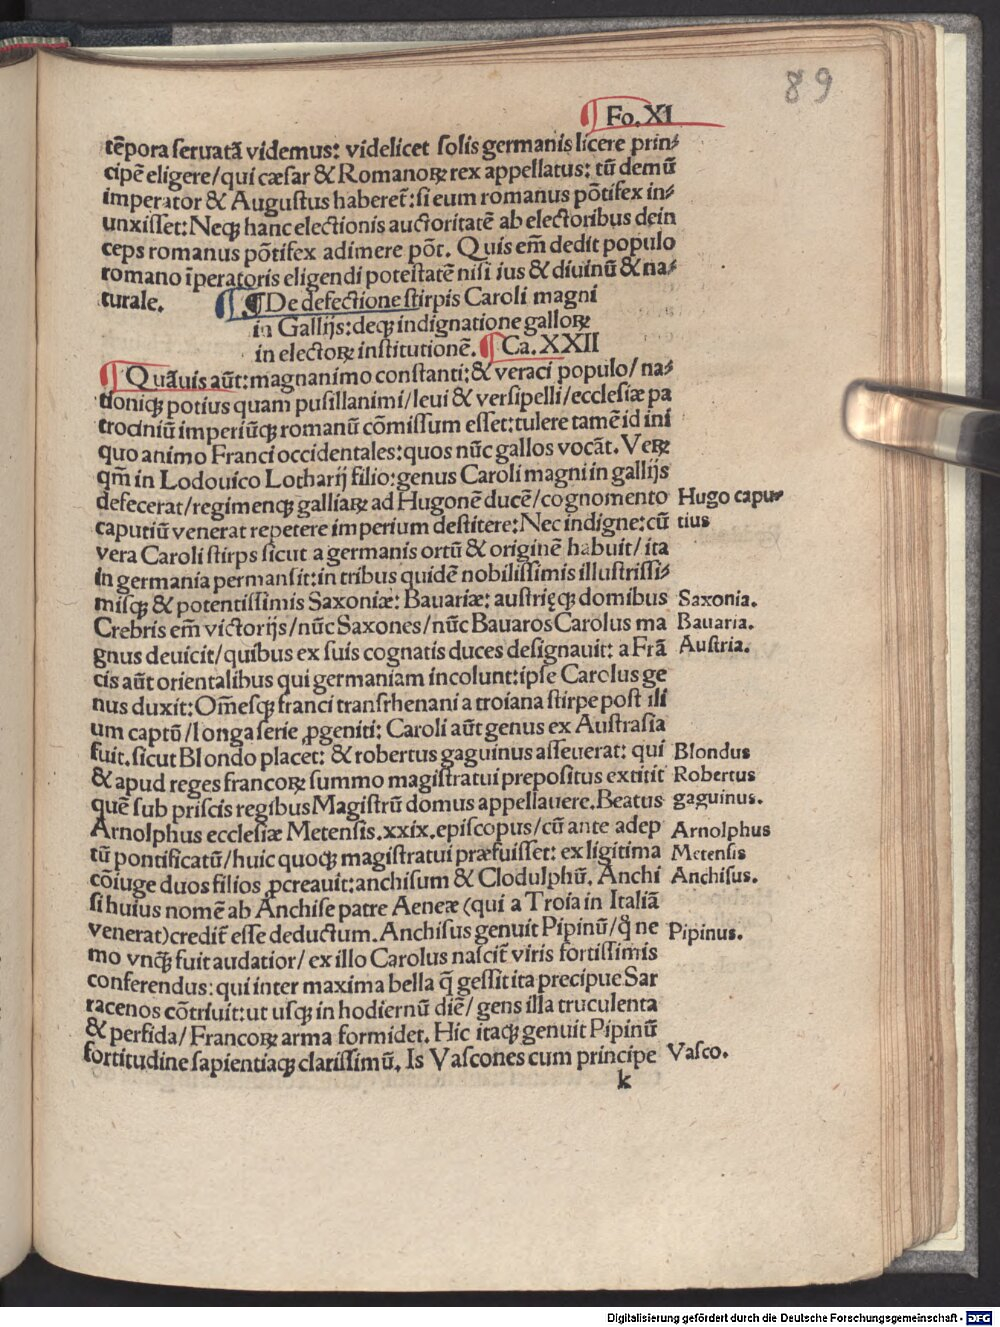 89
¶ Fo. XI
tēpora seruatā videmus: videlicet solis germanis licere prin⸗
cipē eligere/qui cæsar & Romanoꝝ rex appellatus: tū demū
imperator & Augustus haberet̄: si eum romanus pōtifex in⸗
unxisset: Neqꝫ hanc electionis auctoritatē ab electoribus dein
ceps romanus pōtifex adimere pōt. Quis em̄ dedit populo
romano īperatoris eligendi potestatē nisi ius & diuinū & na⸗
turale. ¶ ¶ De defectione stirpis Caroli magni
in Gallijs: deqꝫ indignatione galloꝝ
in electoꝝ institutionē. ¶ Ca. XXII
¶ Quāuis aūt: magnanimo constanti: & veraci populo/ na⸗
tioniqꝫ potius quam pusillanimi/leui & versipelli/ecclesiæ pa
trociniū imperiūqꝫ romanū cōmissum esset: tulere tamē id ini
quo animo Franci occidentales: quos nūc gallos vocāt. Veꝝ
qm̄ in Lodouico Lotharij filio: genus Caroli magni in gallijs
defecerat/regimenqꝫ galliaꝝ ad Hugonē ducē/cognomento
Hugo capu⸗
caputiū venerat repetere imperium destitere: Nec indigne: cū
tius
vera Caroli stirps sicut a germanis ortū & originē habuit/ ita
in germania permansit: in tribus quidē nobilissimis illustrissi⸗
misqꝫ & potentissimis Saxoniæ: Bauariæ: austrięqꝫ domibus
Saxonia.
Crebris em̄ victorijs/nūc Saxones/nūc Bauaros Carolus ma
Bauaria.
gnus deuicit/quibus ex suis cognatis duces designauit: a Frā
Austria.
cis aūt orientalibus qui germaniam incolunt: ipse Carolus ge
nus duxit: Om̄esqꝫ franci transrhenani a troiana stirpe post ili
um captū/longa serie ꝓgeniti: Caroli aūt genus ex Austrasia
fuit. sicut Blondo placet: & robertus gaguinus asseuerat: qui
Blondus
& apud reges francoꝝ summo magistratui prepositus extitit
Robertus
quē sub priscis regibus Magistrū domus appellauere. Beatus
gaguinus.
Arnolphus ecclesiæ Metensis .xxix. episcopus/ cū ante adep
Arnolphus
tū pontificatū/huic quoqꝫ magistratui præfuisset: ex ligitima
Metensis
cōiuge duos filios ꝓcreauit: anchisum & Clodulphū. Anchi
Anchisus.
si huius nomē ab Anchise patre Aeneæ (qui a Troia in Italiā
venerat) credit̄ esse deductum. Anchisus genuit Pipinū/ q̄ ne
Pipinus.
mo vnqꝫ̄ fuit audatior/ ex illo Carolus nascit̄ viris fortissimis
conferendus: qui inter maxima bella q̄ gessit ita precipue Sar
racenos cōtriuit: ut usqꝫ in hodiernū diē/ gens illa truculenta
& perfida/ Francoꝝ arma formidet. Hic itaqꝫ genuit Pipinū
fortitudine sapientiaqꝫ clarissimū. Is Vascones cum principe
Vasco.
k
Digitalisierung gefördert durch die Deutsche Forschungsgemeinschaft - DFG